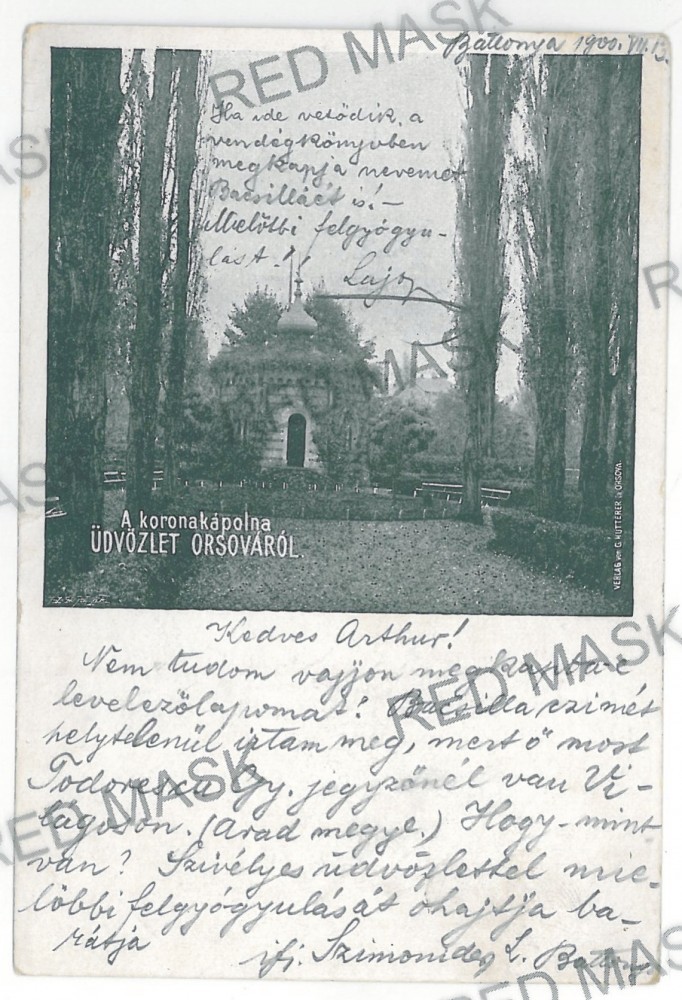 Battonya 1900. VII. 13.
Ha ide vetődik, a
vendégkönyvben
megkapja nevemet
Bacsilláét is! –
Mielőbbi felgyógyu-
lást!
Lajos
A koronakápolna
ÜDVÖZLET ORSOVÁRÓL.
VERLAG von G. HUTTERER in ORSOVA.
Kedves Arthur!
Nem tudom vajjon megkapta-e
levelezőlapomat! Bacsilla czimét
helytelenül irtam meg, mert ő most
Todorescu Gy. jegyzőnél van Vi-
lágoson. (Arad megye.) Hogy-mint
van? Szivélyes üdvözlettel mie-
lőbbi felgyógyulását óhajtja ba-
rátja
ifj. Szimonidesz L. Battonya
RED MASK
RED MASK
RED MASK
RED MASK